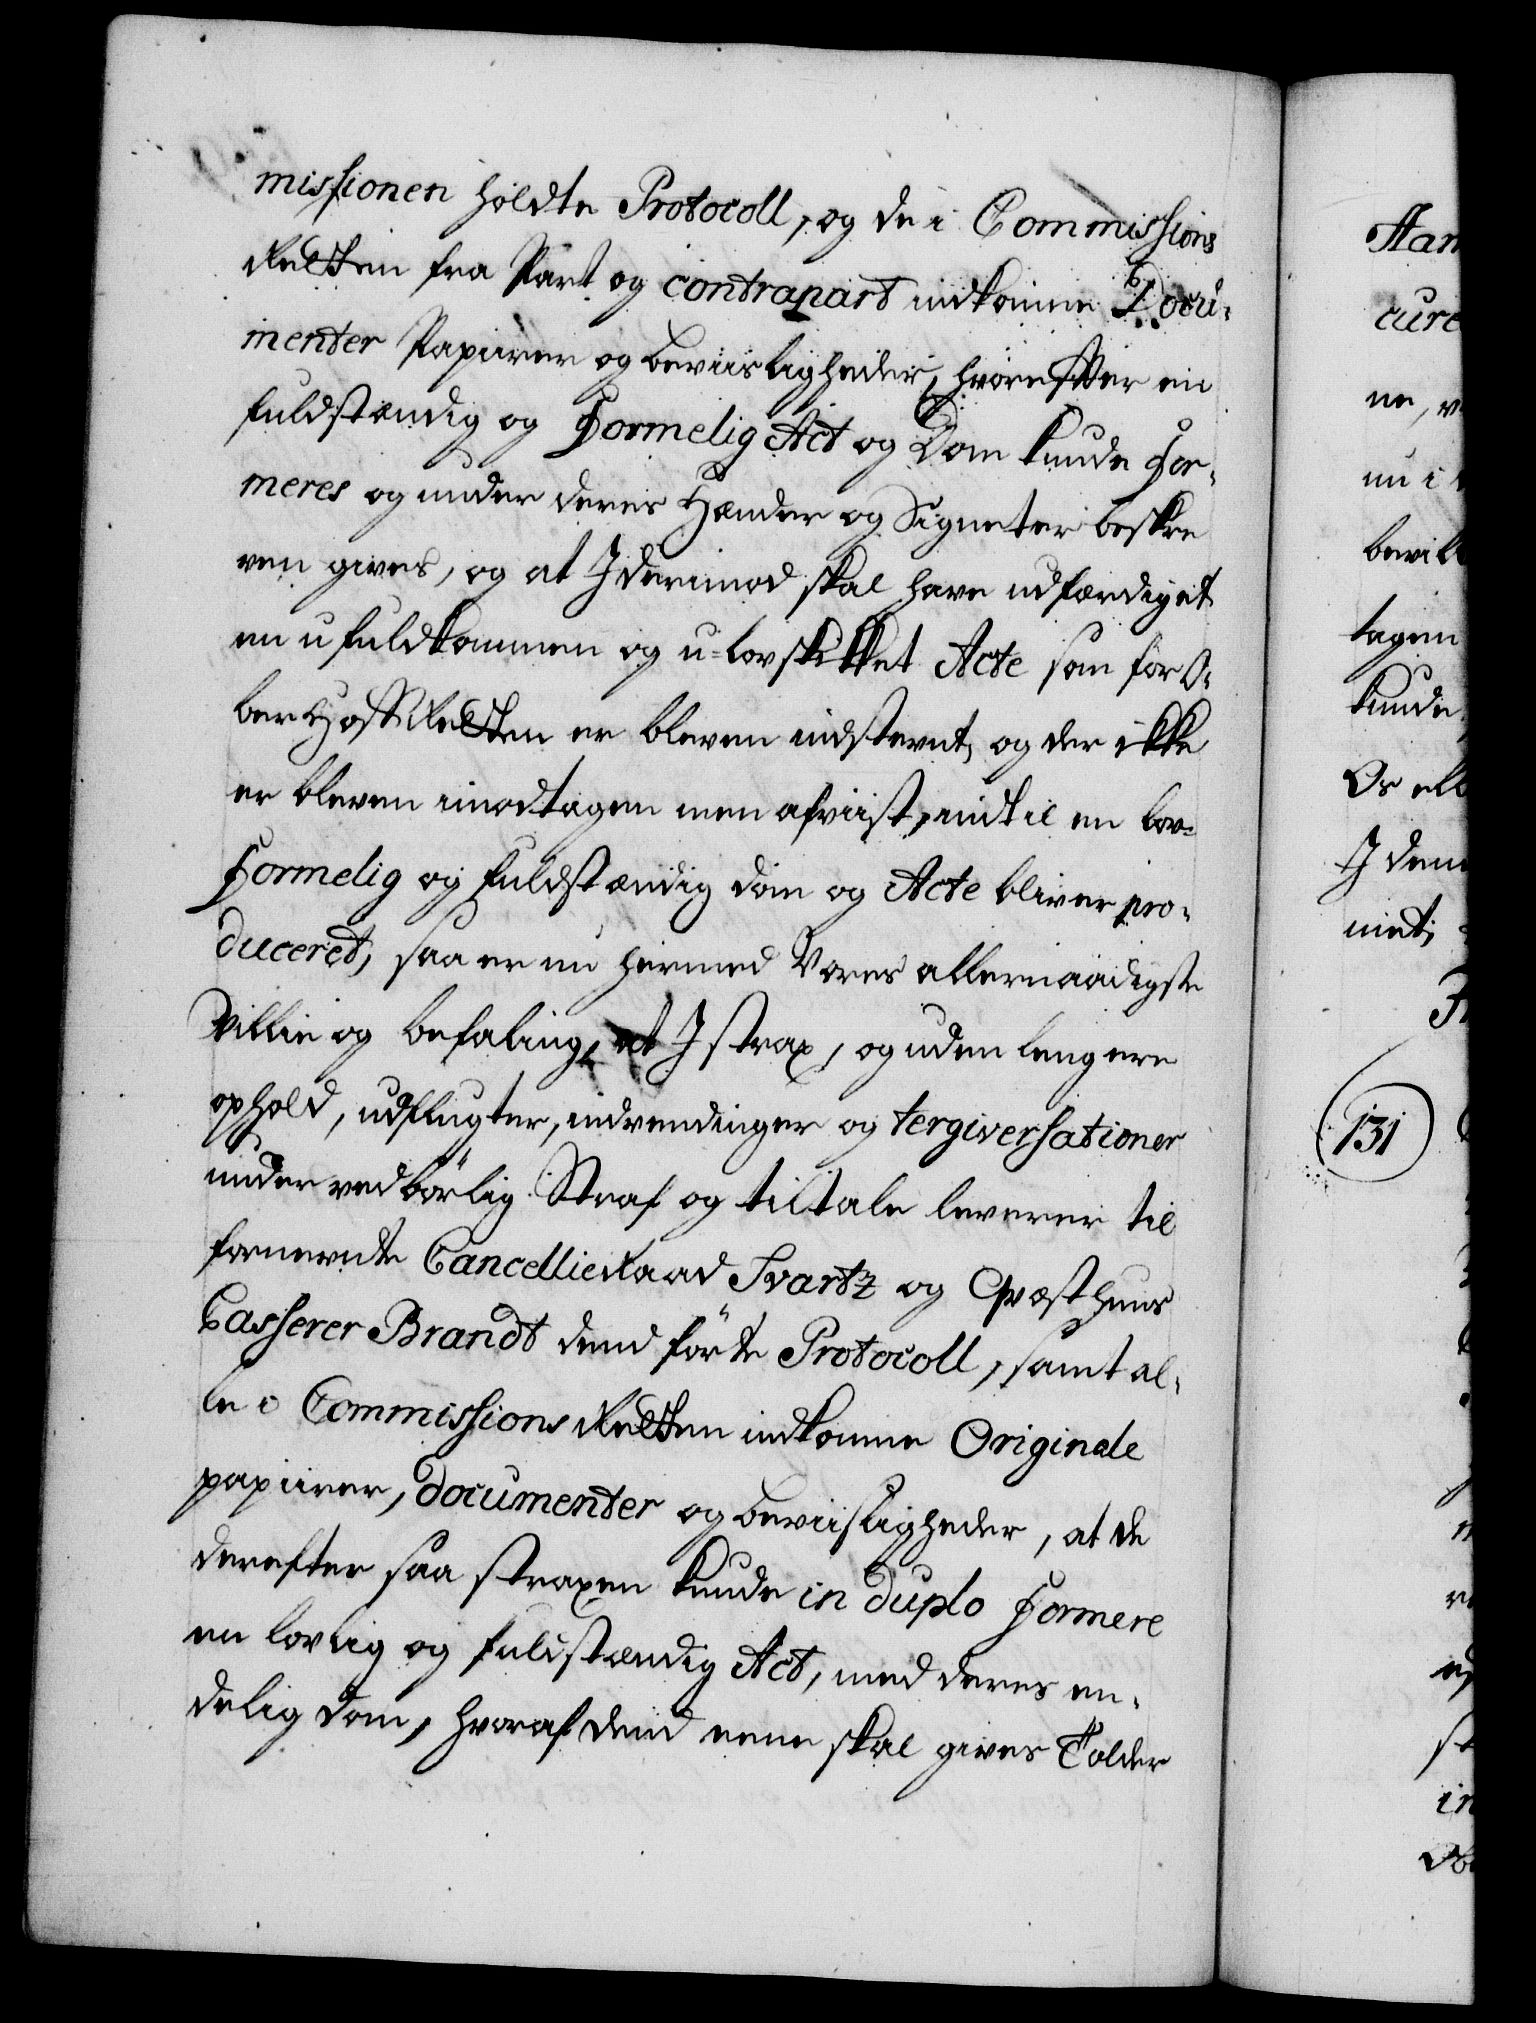 missionen holdte Protocoll, og de i Commissions
Retten fra Part og contrapart indkomne Docu-
menter Papiirer og beviisligheder, hvorefter en
fuldstændig og Formelig Act og Dom kunde For-
meres og under deres Hænder og Signeter beskre
ven gives, og at I derimod skal have udfærdiget
en ufuldkommen og u-lovskikket Acte som for O-
ber Hoff Retten er bleven indstevnt, og der ikke
er bleven imodtagen men afviist, indtil en lov-
Formelig og fuldstændig dom og Acte bliver pro-
duceret, saa er nu hermed Vores allernaadigste
Villie og befaling, at I strax, og uden lengere
ophold, udflugter, indvendinger og tergiversationer
under vedbörlig Straf og tiltale leverer til
fornevnte Cancellie Raad Svartz og Qvæsthuus
Casserer Brandt dend förte Protocoll, samt al-
le i Commissions Retten indkomne Originale
papiirer, documenter og beviisligheder, at de
derefter saa straxen kunde in duplo Formere
en lovlig og fuldstændig Act, med deres en-
delig dom, hvoraf dend eene skal gives Tolder
cure
ne, v
nu i
tagen
kunde
Os ell
I dem
met,
131
in